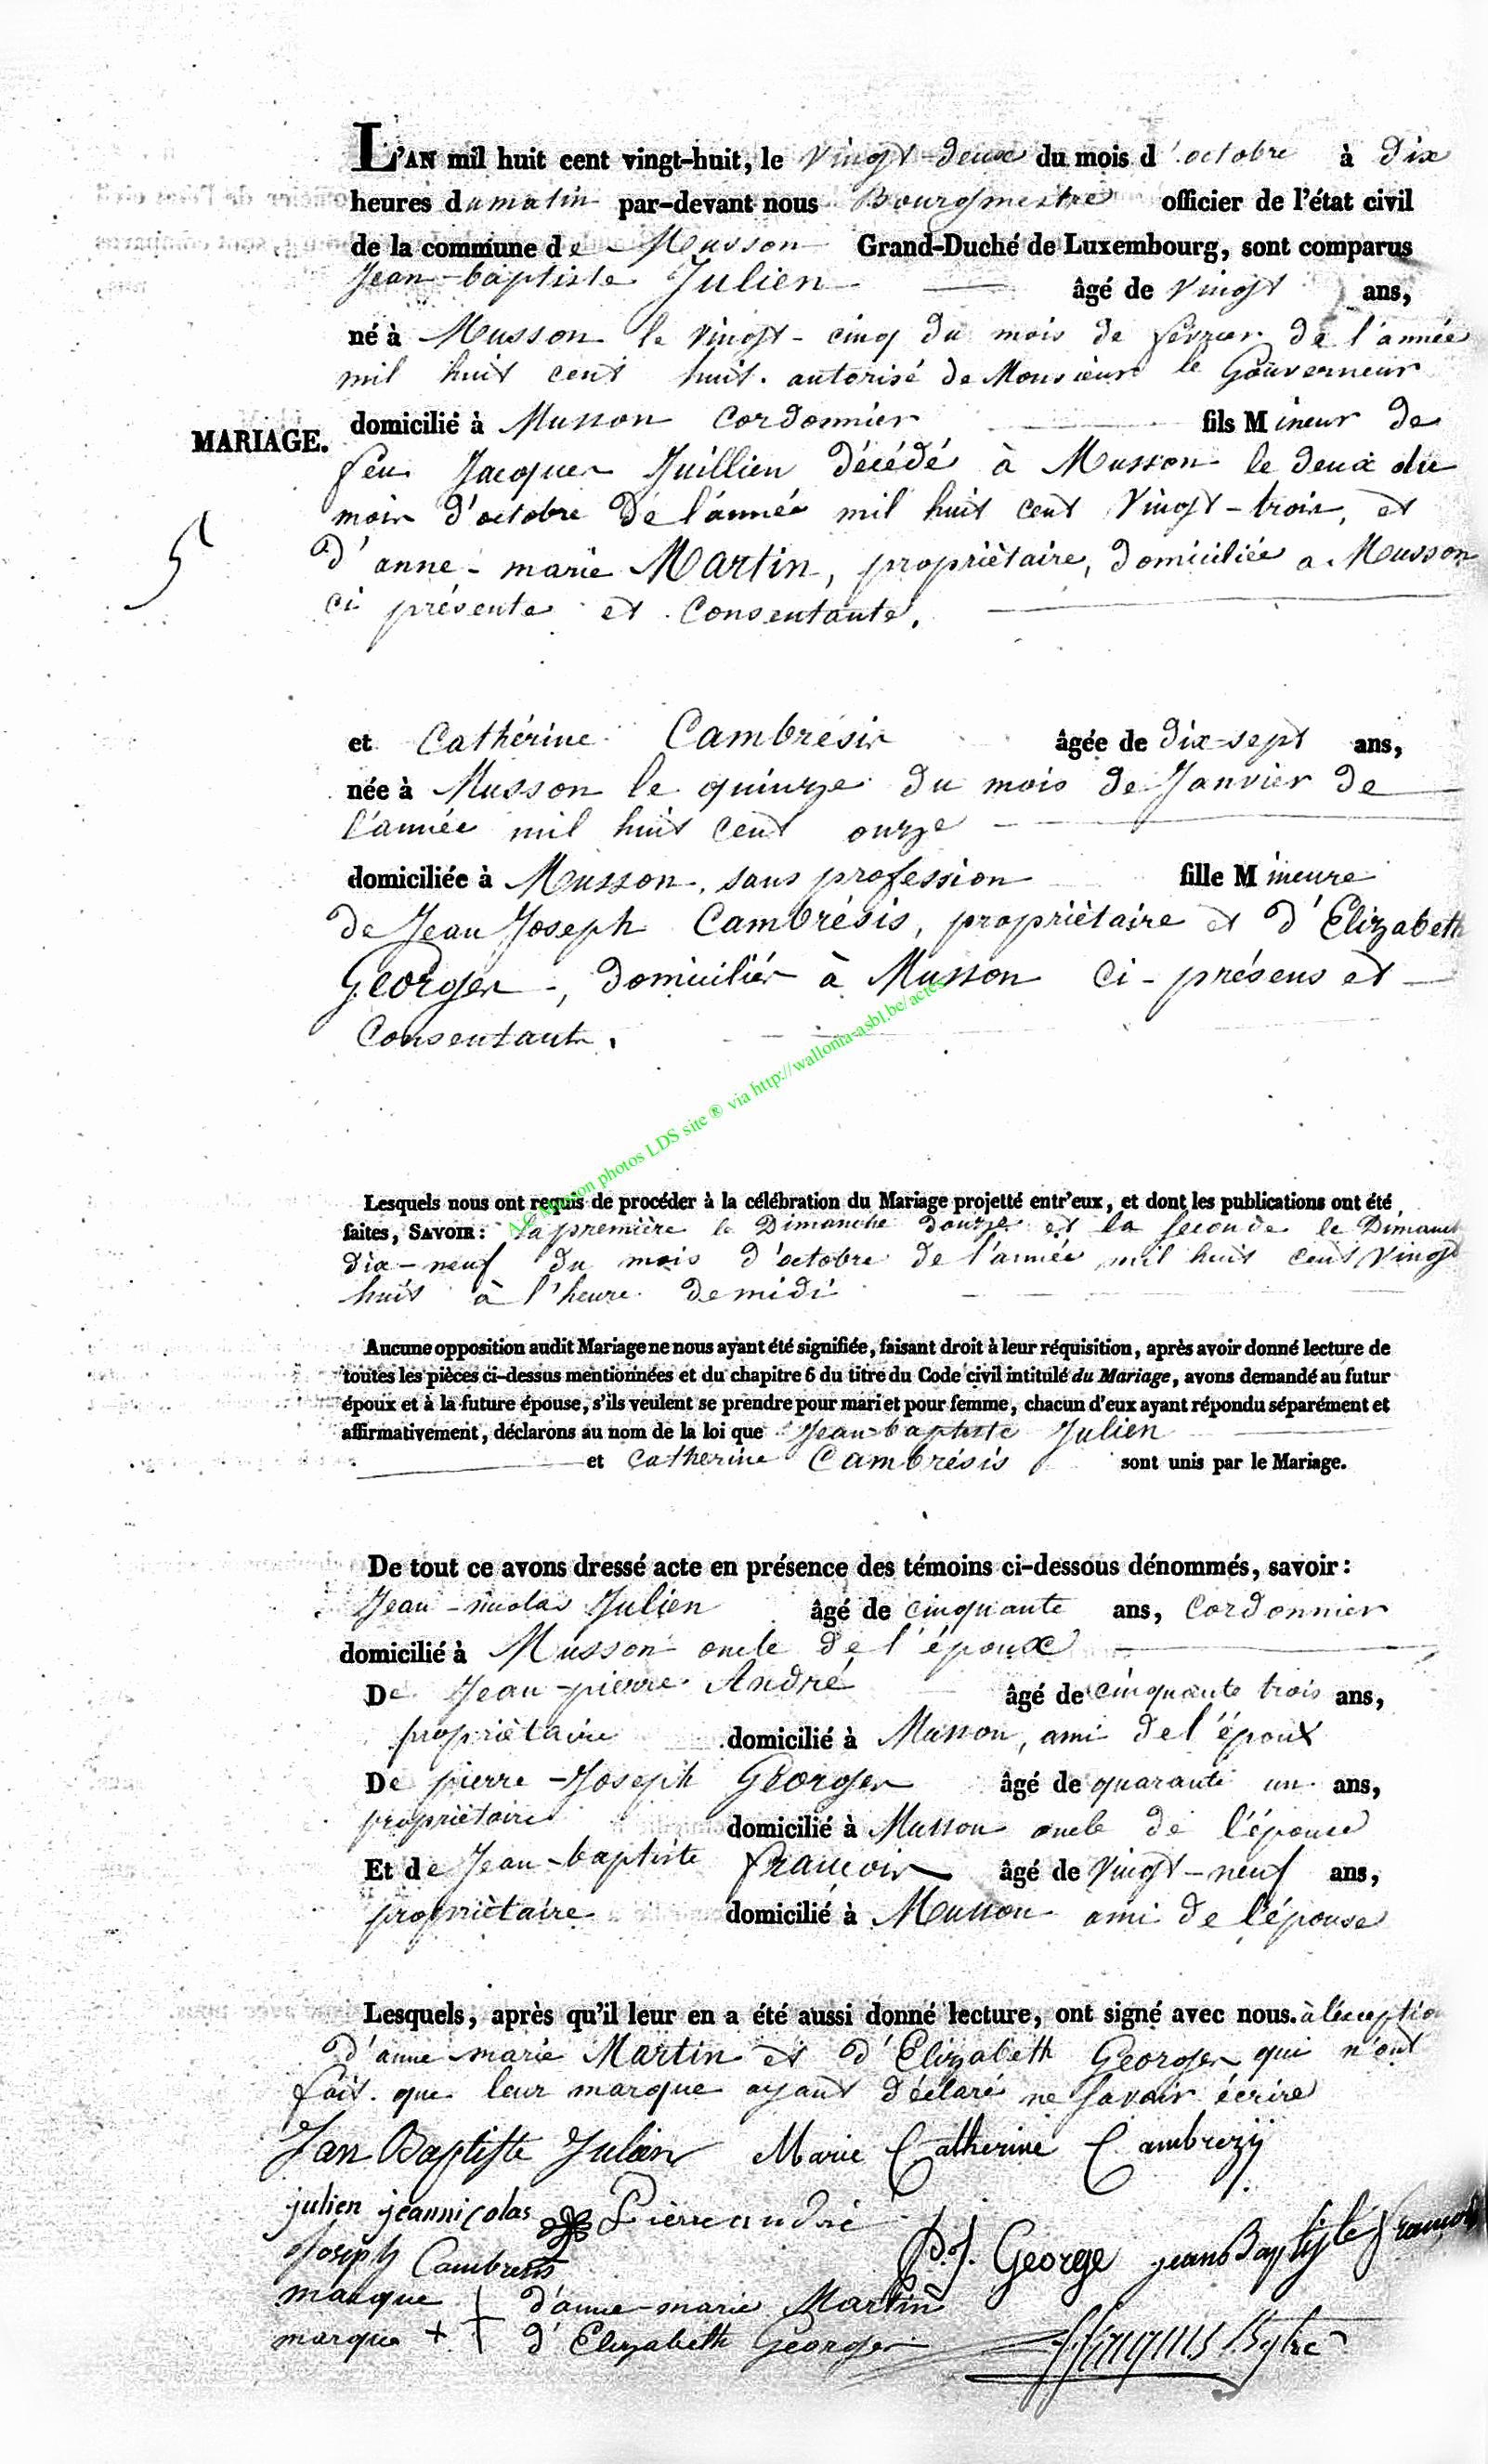 L'AN mil huit cent vingt-huit, le vingt-deux du mois d'octobre à dix
heures dumatin par-devant nous Bourgmestre officier de l'état civil
de la commune de Musson Grand-Duché de Luxembourg, sont comparus
Jean-baptiste Julien âgé de vingt ans,
né à Musson le vingt-cinq du mois de fevrier de l'année
mil huit cent huit. autorisé de Monsieur le Gouverneur
domicilié à Musson Cordonnier fils Mineur de
MARIAGE.
feu Jacques Juillien décédé à Musson le deux du
mois d'octobre de l'année mil huit cent vingt-trois, et
5
d'anne-marie Martin, propriètaire, domiciliée a Musson
ci présente et Consentante.
et Cathérine Cambrésis âgée de dix-sept ans,
née à Musson le quinze du mois de Janvier de
l'année mil huit cent onze
domiciliée à Musson, sans profession fille Mineure
de Jean Joseph Cambrésis, propriètaire et d'Elizabeth
Georges, domiciliés à Musson Ci-présens et
Consentants.
A.C. Musson photos LDS site ® via http://wallonia-asbl.be/actes
Lesquels nous ont requis de procéder à la célébration du Mariage projetté entr'eux, et dont les publications ont été
faites, SAVOIR: la première le Dimanche douze et la seconde le Dimanche
dix-neuf du mois d'octobre de l'année mil huit cent vingt
huit à l'heure de midi
Aucune opposition audit Mariage ne nous ayant été signifiée, faisant droit à leur réquisition, après avoir donné lecture de
toutes les pièces ci-dessus mentionnées et du chapitre 6 du titre du Code civil intitulé du Mariage, avons demandé au futur
époux et à la future épouse, s'ils veulent se prendre pour mari et pour femme, chacun d'eux ayant répondu séparément et
affirmativement, déclarons au nom de la loi que Jean-baptiste Julien
et Catherine Cambrésis sont unis par le Mariage.
De tout ce avons dressé acte en présence des témoins ci-dessous dénommés, savoir:
Jean-nicolas Julien âgé de cinquante ans, Cordonnier
domicilié à Musson oncle de l'époux
De Jean-pierre André âgé de cinquante trois ans,
propriètaire domicilié à Musson, ami de l'époux
De pierre-Joseph Georges âgé de quarante un ans,
propriètaire domicilié à Musson oncle de l'épouse
Et de Jean-baptiste françois âgé de vingt-neuf ans,
propriètaire domicilié à Musson ami de l'épouse
Lesquels, après qu'il leur en a été aussi donné lecture, ont signé avec nous. à l'éxception
d'anne marie Martin et d'Elizabeth Georges qui n'ont
fait que leur marque ayant déclaré ne savoir écrire
Jan Baptiste Julien Marie Catherine Cambrezÿ
julien jeannicolas Pierre andré
P.J. George jean Baptiste françois
Joseph Cambresis
marque d'anne-marie Martin
marque + d'Elizabeth Georges